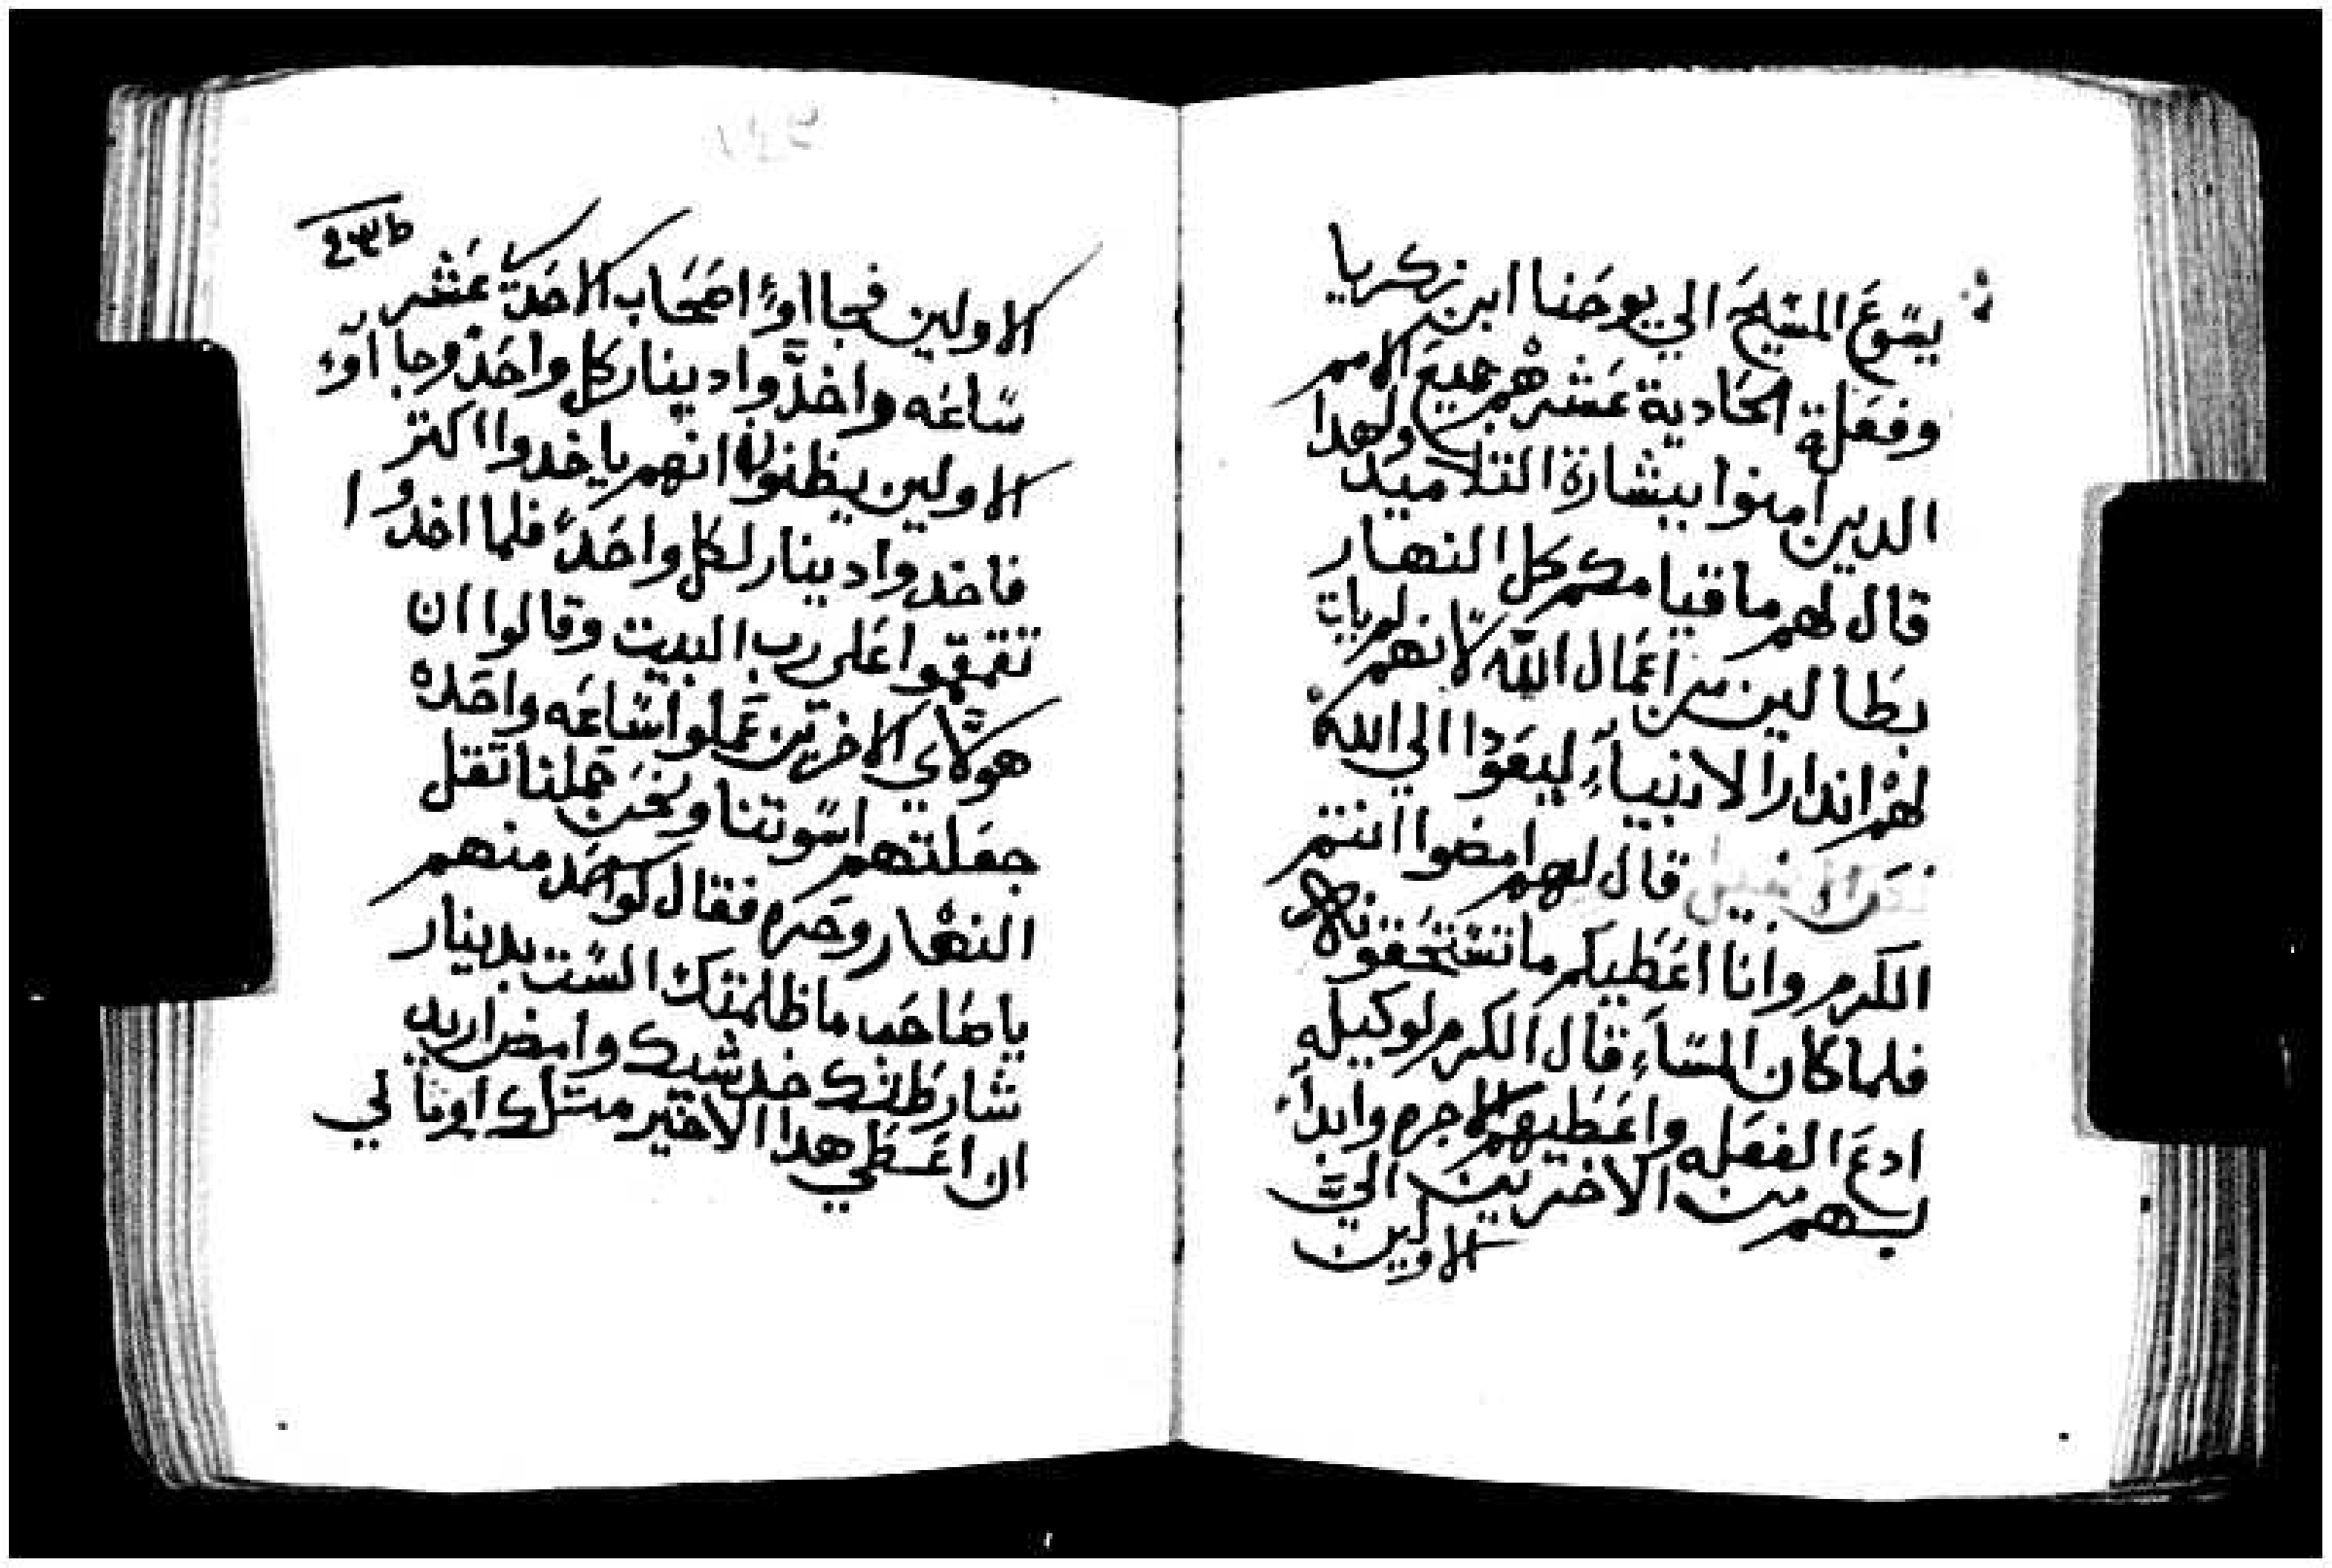 يسوع المسيح الي يوحنا ابن زكريا
وفعلة الحادية عشر هم جميع الامم
الدين امنوا ببشارة التلاميد ولهدا
قال لهم ما قيامكم كل النهار
بطالين من اعمال الله لانهم لم يات
لهم اندار الانبياء ليعودا الي الله
قال لهم امضوا انتم
الكرم وانا اعطيكم ما تستحقونه
فلما كان المساء قال الكرم لوكيله
ادع الفعله واعطيهم الاجره وابدا
بهم من الاخريين الي
الاولين
الاولين فجا اوء اصحاب الاحد عشر
ساعه واخدوا دينار كل واحد وجا اوء
الاولين يظنون انهم ياخدوا اكتر
فاخدوا دينار لكل واحد فلما اخدوا
تقمقموا علي رب البيت وقالوا ان
هولاي الاخريين عملوا ساعه واحده
جعلتهم اسوتنا ونحن حملنا تقل
النهار وحره فقال لواحد منهم
يا صاحب ما ظلمتك الست بدينار
شارطتك خد شيك وامض اريد
ان اعطي هدا الاخير متلك اوما لي